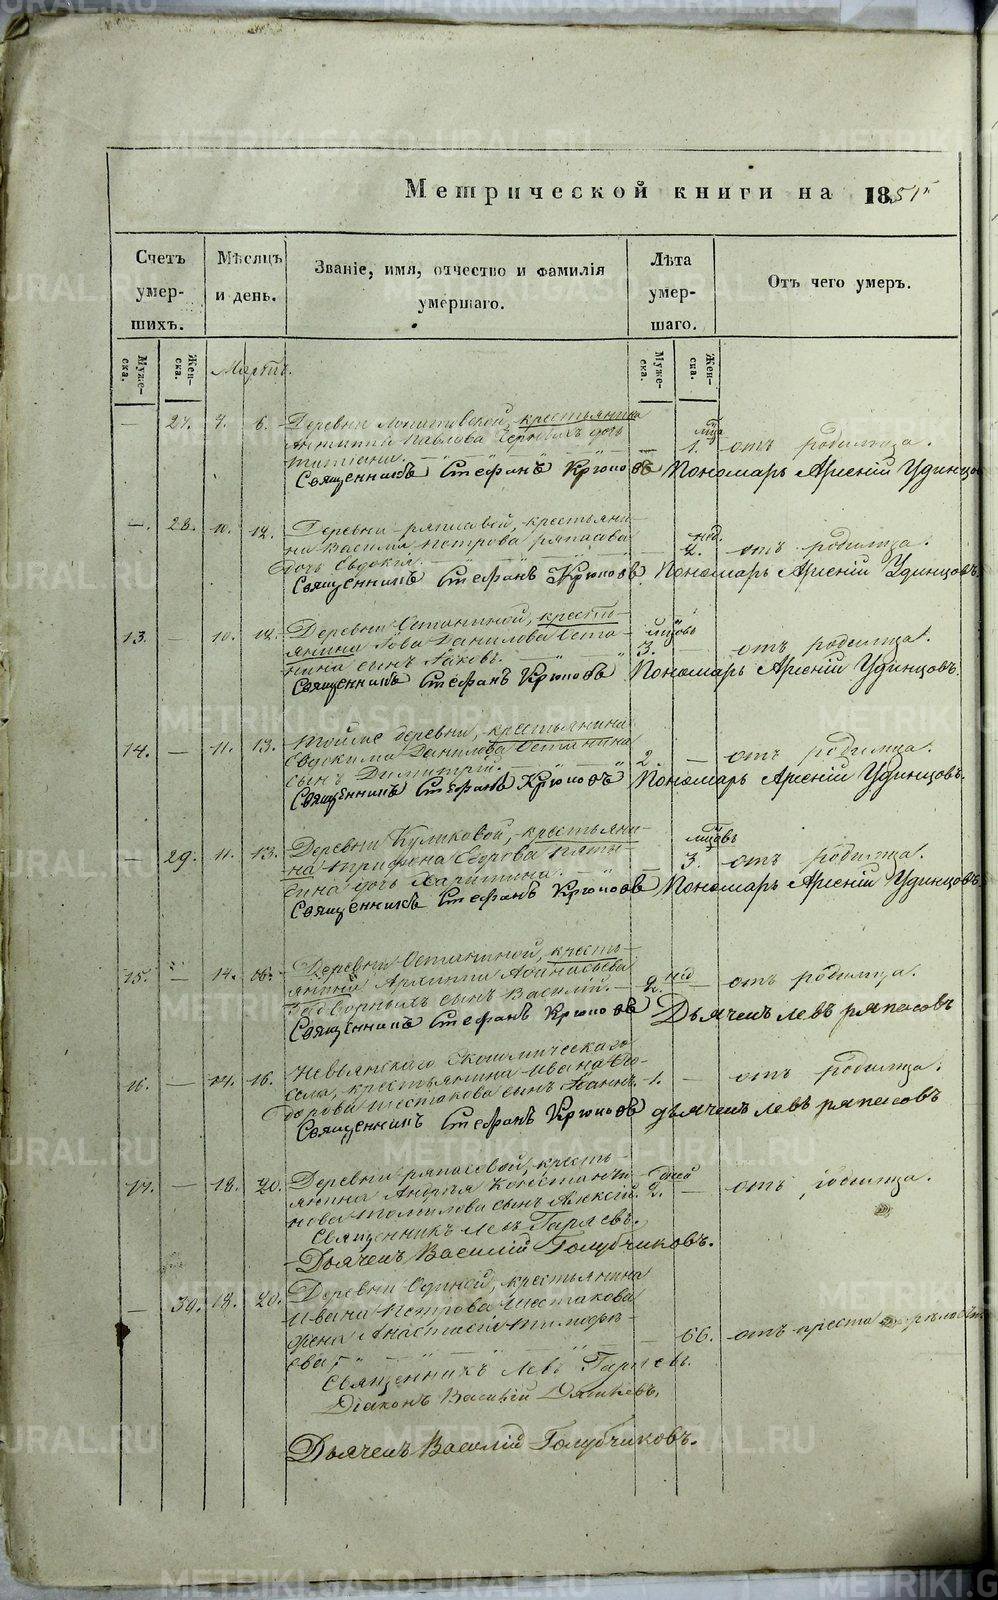 Метрической книги на 1851
Счетъ умер- шихъ.
Мѣсяцъ и день.
Званіе, имя, отчество и фамилія умершаго.
Лѣта умер- шаго.
Отъ чего умеръ.
Муже- ска.
Жен- ска.
Мартъ.
Муже- ска.
Жен- ска.
27. 4. 6. Деревни крестьянина
Павлова Черныхъ дочь
1. отъ родимца.
Священникъ Стефанъ Крюковъ Пономарь Арсеній Удинцовъ
28. 10. 12. Деревни Ряпасовой, крестьяни-
на Василія Петрова Ряпасова
дочь Евдокія. нед. 2. отъ родимца.
Священникъ Стефанъ Крюковъ. Пономарь Арсеній Удинцовъ.
13. — 10. 12. Деревни Останиной, крестья-
янина Іова Данилова Оста-
нина сынъ Іаковъ. 3. — отъ родимца.
Священникъ Стефанъ Крюковъ Пономарь Арсеній Удинцовъ.
14. — 11. 13. Тойже деревни, крестьянина
Евдокима Данилова Останина
сынъ Димитрій. 2. — отъ родимца.
Священникъ Стефанъ Крюковъ Пономарь Арсеній Удинцовъ.
— 29. 11. 13. Деревни Куликовой, крестьяни-
на Трифона Егорова
дочь Харитина. 3. отъ родимца.
Священникъ Стефанъ Крюковъ Пономарь Арсеній Удинцовъ
15. — 14. 16. Деревни Останиной, кресть-
Аѳанасьева
сынъ Василій. — 2. нед — отъ родимца.
Священникъ Стефанъ Крюковъ Дьячекъ Левъ Ряпасовъ
16. — 14. 16. Невьянскаго Экономическаго
села, крестьянина Ивана Ѳео-
дорова Шестакова сынъ Іоаннъ. 1. — отъ родимца.
Священникъ Стефанъ Крюковъ Дьячекъ Левъ Ряпасовъ
17. — 18. 20. Деревни Ряпасовой, кресть-
янина Андрея Константи-
нова Томилова сынъ Алексій. дней 2. — отъ родимца.
Священникъ Левъ Гаряевъ.
Дьячекъ Василій Голубчиковъ.
— 30. 18. 20. Деревни крестьянина
Ивана Петрова Шестакова
жена Анастасія Тимофе-
ева. — 66. отъ престарѣлости.
Священникъ Левъ Гаряевъ.
Діаконъ Василій
Дьячекъ Василій Голубчиковъ.
METRIKI.GASO-URAL.RU